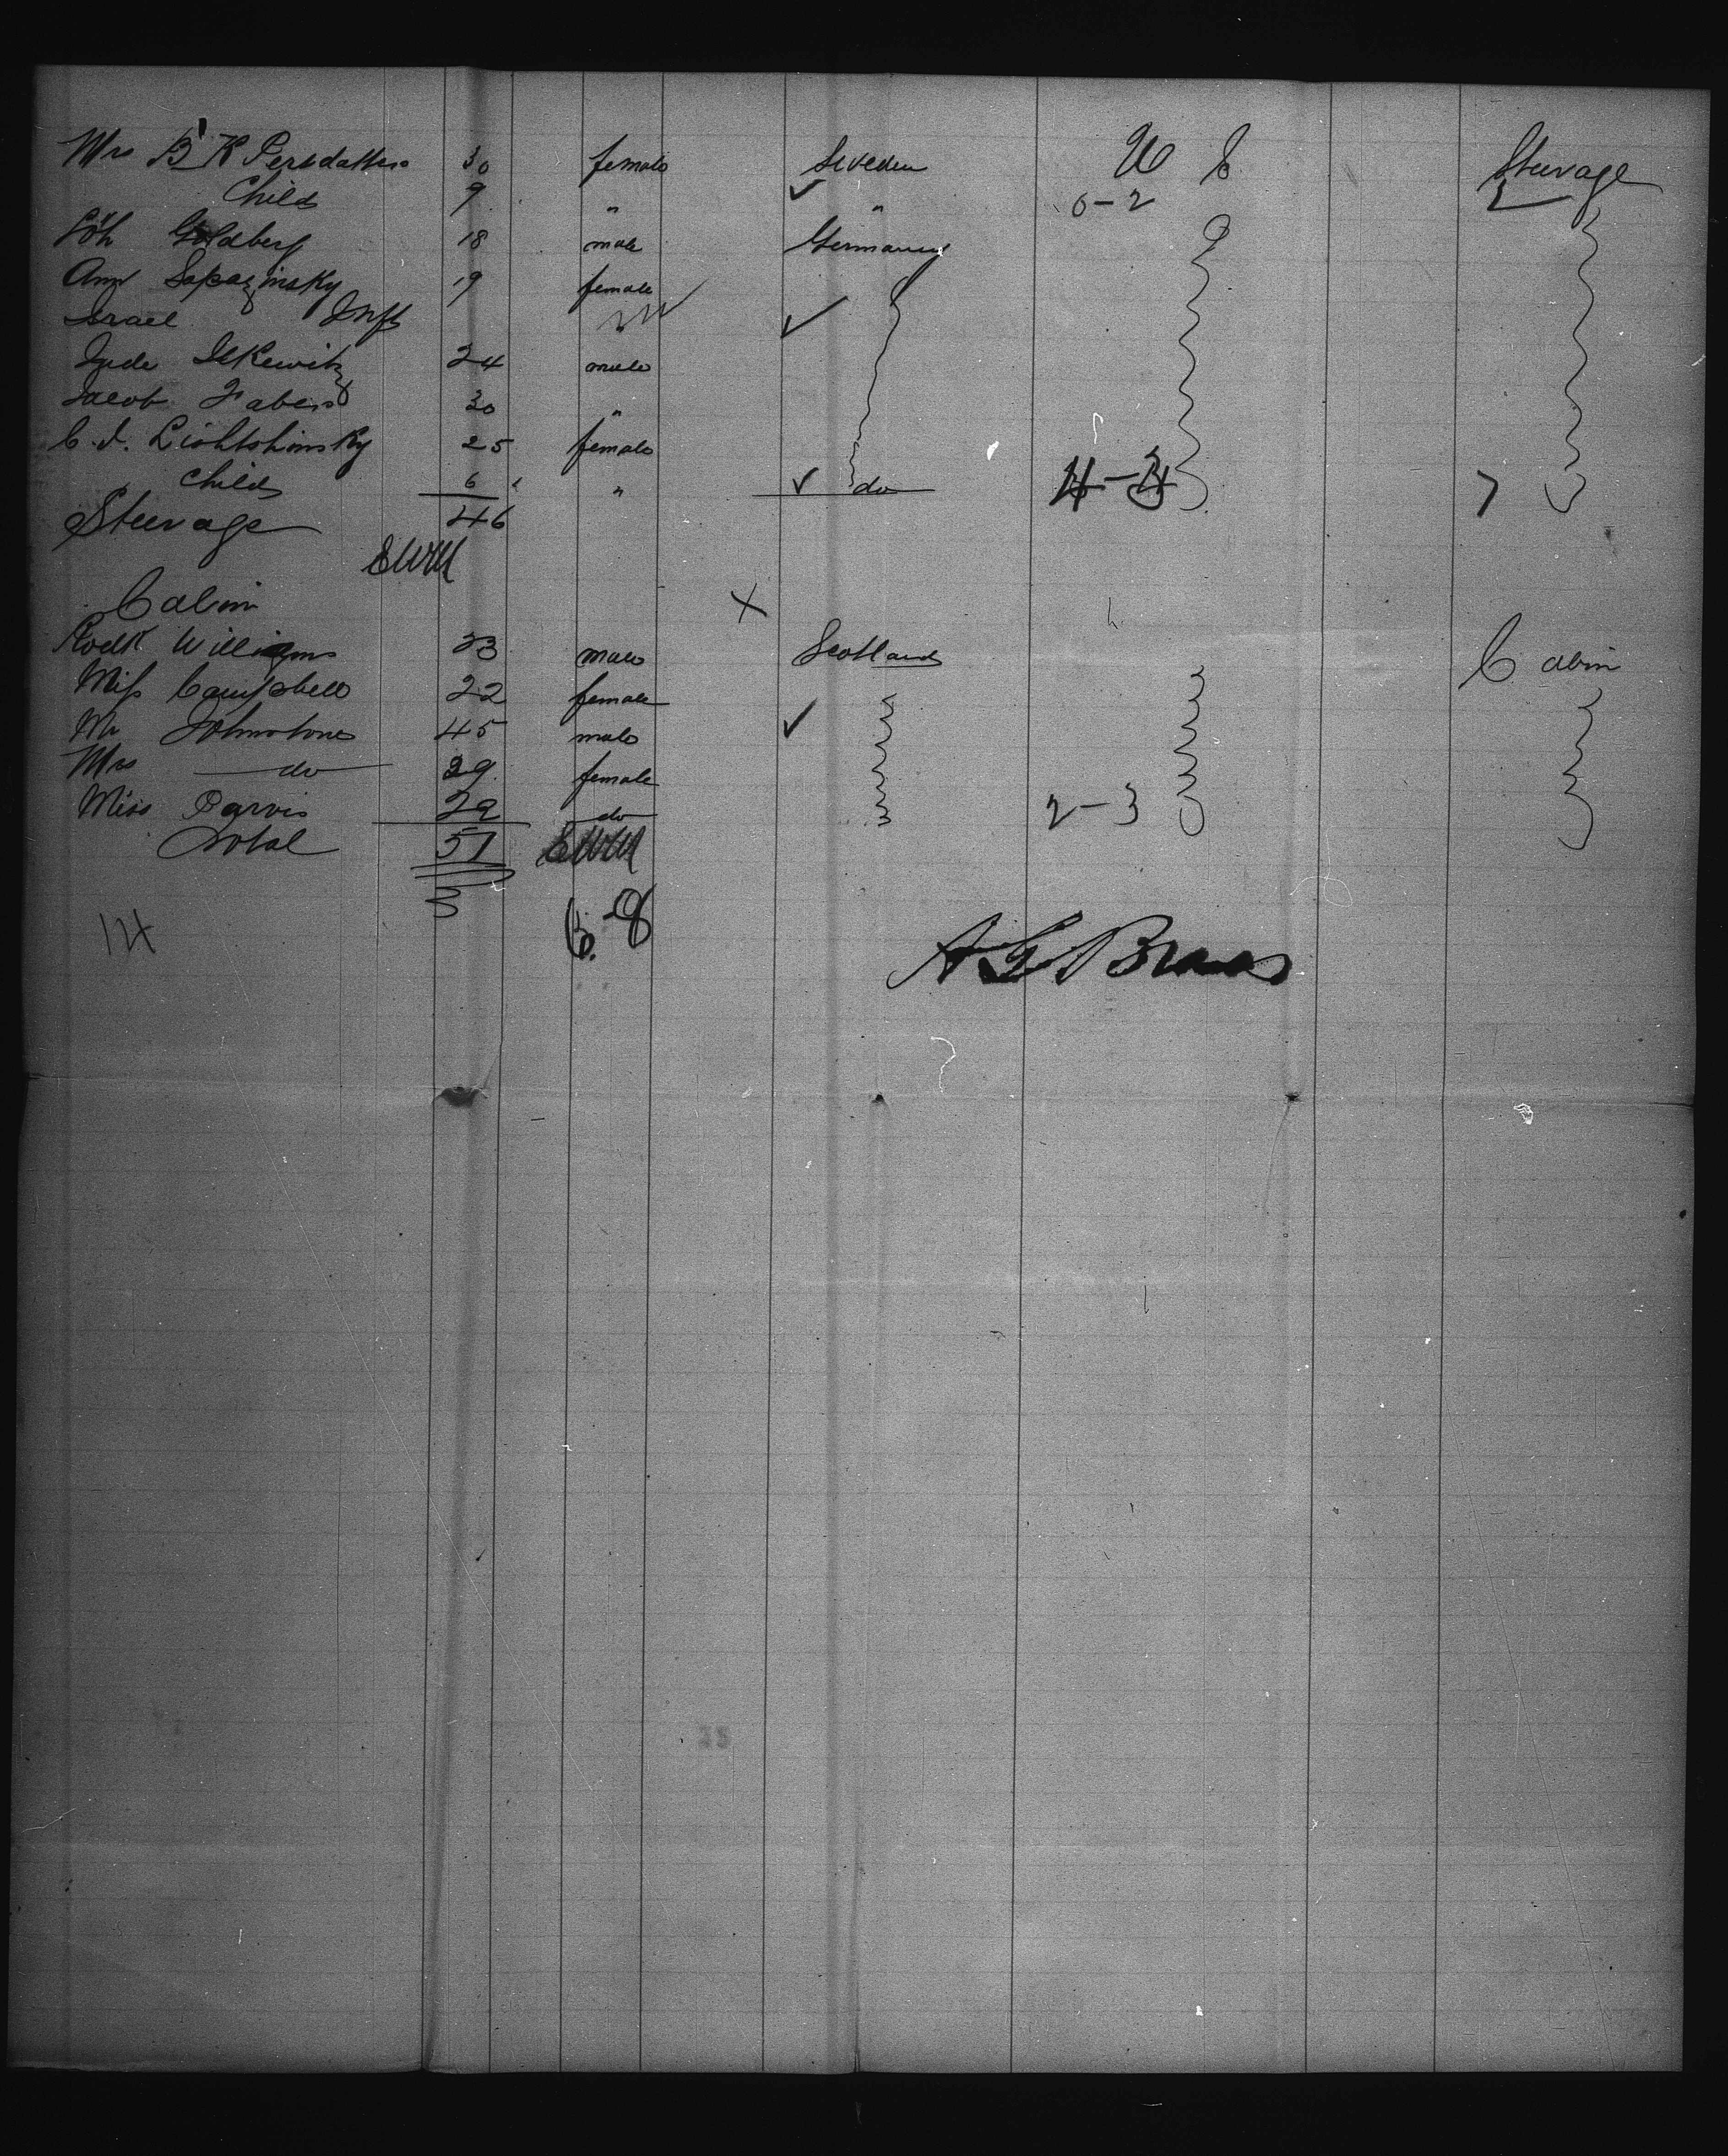 Mrs B K Persdatter 30 female Sweden U S Steerage
Child 9 " " 0-2 2
Löh Goldberg 18 male Germany
Ann Sapazinsky 19 female
Israel Inft "
Jude Ilkewitz 24 male
Jacob Fabers 30 "
C. I. Lichtshinsky 25 female
Child 6 " do 4-3 7
Steerage 46
EWM
Cabin
Rodk Williams 23 male Scotland Cabin
Miss Campbell 22 female
Mr Johnstone 45 male
Mrs do 39 female
Miss Parvis 22 do 2-3
Total 51 EWM
6-8
14
A G Braes